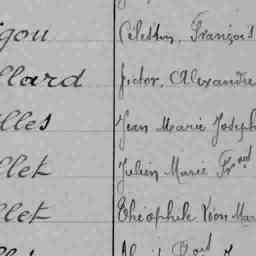 gou Célestin, François
llard Victor, Alexandre
lles Jean Marie Joseph
llet Julien Marie Frand
llet Théophile Léon Mar